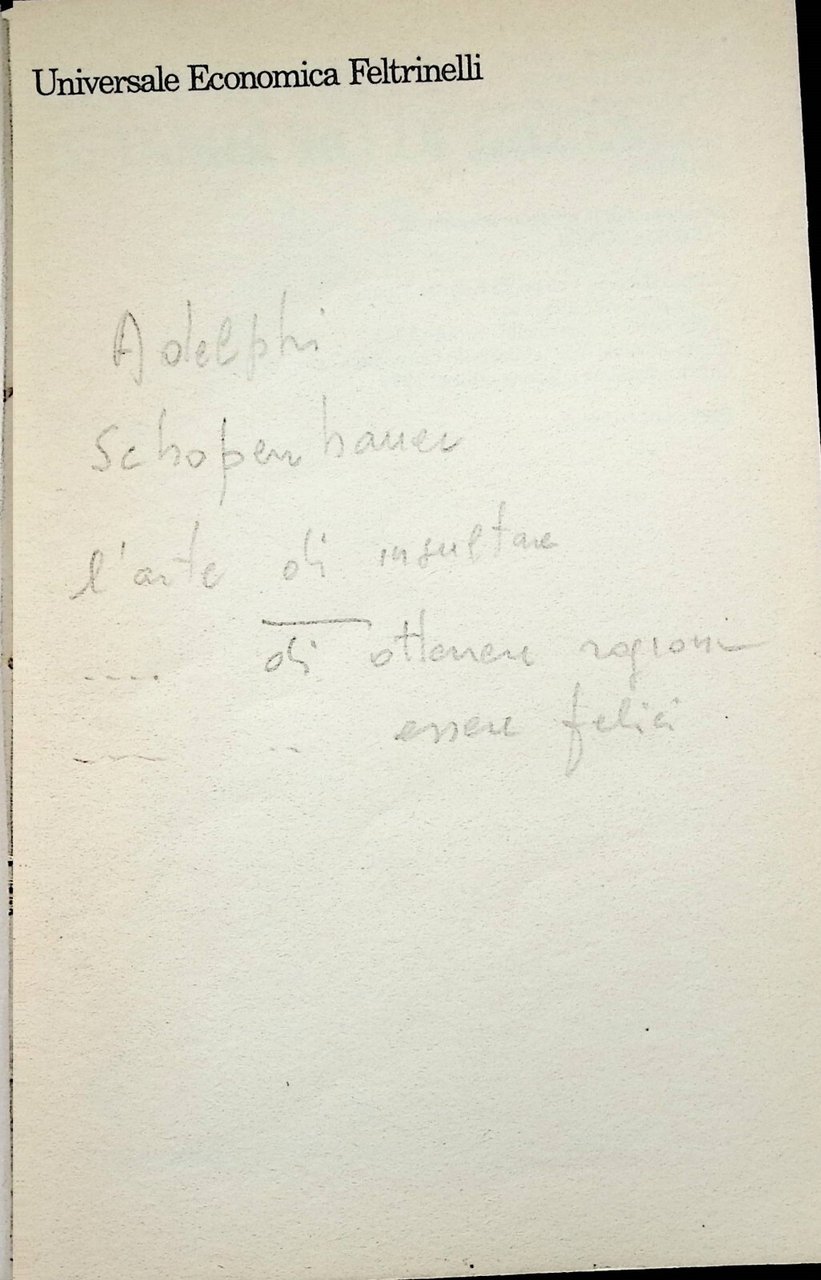 Universale Economica Feltrinelli
Adelphi
Schopenhauer
l'arte di insultare
.... di ottenere ragioni
.... .. essere felici